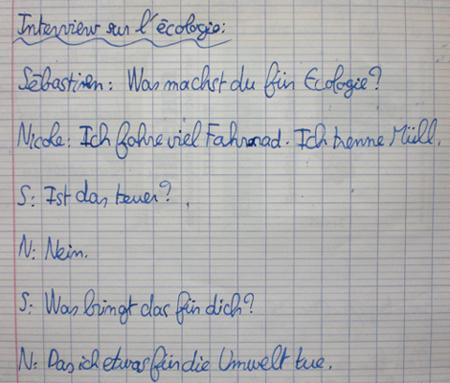 Interview sur l'écologie:
Sébastien: Was machst du für Ecologie?
Nicole: Ich fahre viel Fahrrad. Ich trenne Müll.
S: Ist das teuer?
N: Nein.
S: Was bringt das für dich?
N: Das ich etwas für die Umwelt tue.